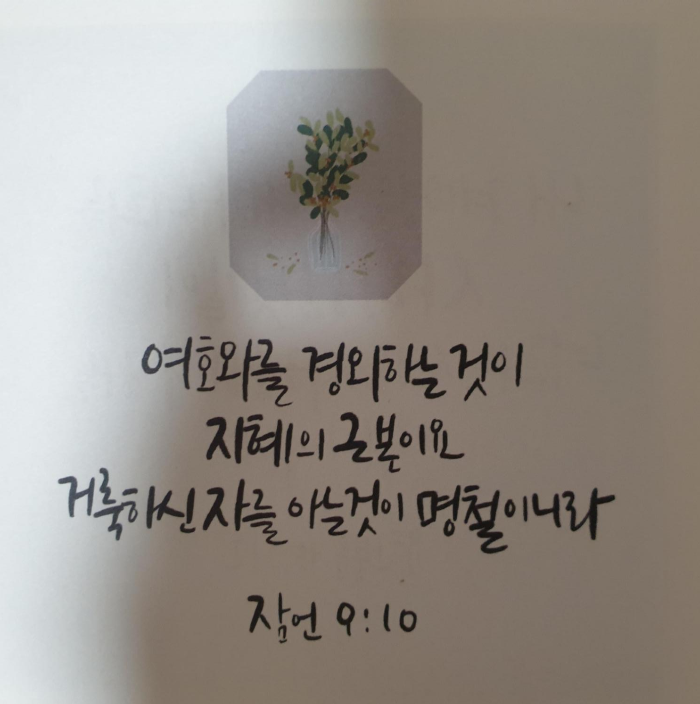 여호와를 경외하는 것이
지혜의 근본이요
거룩하신 자를 아는것이 명철이니라
잠언 9:10